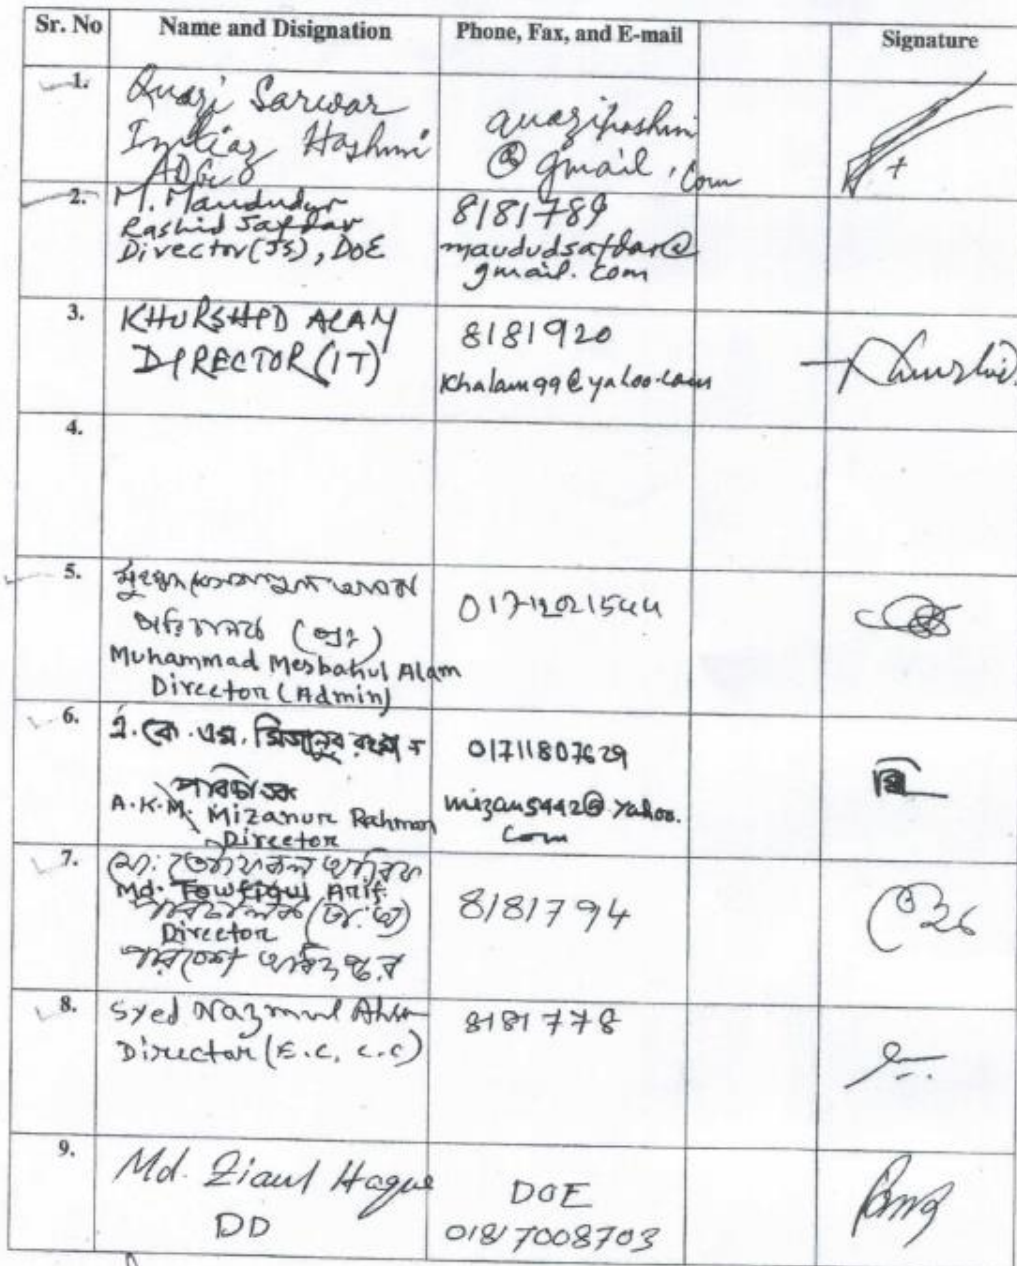 Sr. No Name and Disignation Phone, Fax, and E-mail Signature
1. Quazi Sarwar
Imtiaz Hashmi
quazihashmi
@ gmail.com
2. M. Maududur
Rashid Safdar
Director (JS), DoE
8181789
maududsafdar@
gmail.com
3. KHURSHED ALAM
DIRECTOR (IT)
8181920
khalam99@yahoo.com
Khurshid
4.
5.
Muhammad Mesbahul Alam
Director (Admin)
6. এ. কে. এম. মিজানুর রহমান
পরিচালক
A.K.M. Mizanur Rahman
Director
01711807629
mizan5442@yahoo.
com
7. মো: তৌফিকুল আরিফ
Md. Towfiqul Arif
পরিচালক
Director
পরিবেশ অধিদপ্তর
8181794
8. Syed Nazmul Ahsan
Director (E.C, C.C)
8181778
9. Md. Ziaul Haque
DD
DOE
01817008703